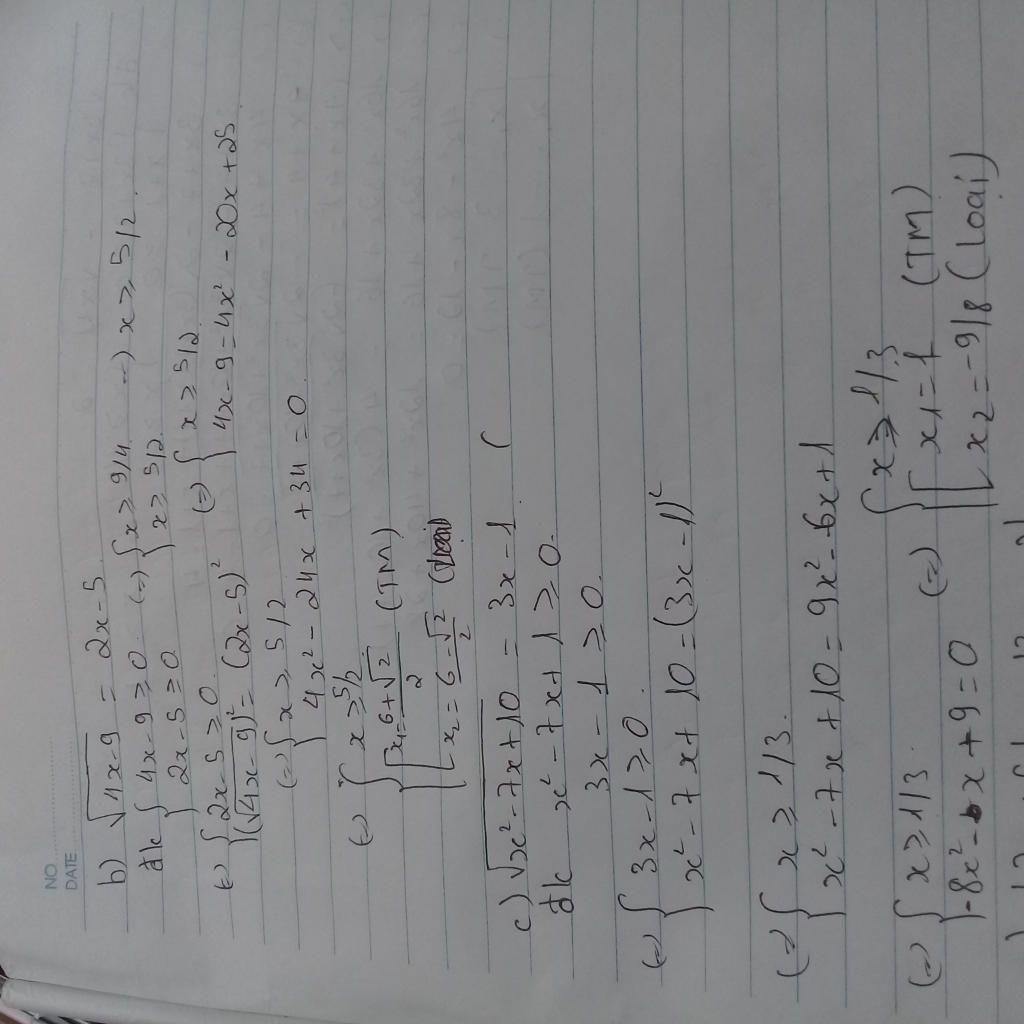 NO
DATE
b) √(4x-9) = 2x-5
đk { 4x-9 ≥ 0 (=) { x ≥ 9/4 -) x ≥ 5/2.
{ 2x-5 ≥ 0 { x ≥ 5/2
(=) { 2x-5 ≥ 0 (=) { x ≥ 5/2
{ (√(4x-9))² = (2x-5)² { 4x-9 = 4x² - 20x + 25
(=) { x ≥ 5/2
{ 4x² - 24x + 34 = 0
(=) { x ≥ 5/2
{ [ x₁ = (6+√2)/2 (TM)
[ x₂ = (6-√2)/2 (loại)
c) √(x²-7x+10) = 3x-1 (
đk x²-7x+1 ≥ 0
3x-1 ≥ 0
(=) { 3x-1 ≥ 0
{ x²-7x+10 = (3x-1)²
(=) { x ≥ 1/3.
{ x²-7x+10 = 9x²-6x+1
(=) { x ≥ 1/3 (=) { x ≥ 1/3
{ -8x²-x+9=0 { [ x₁ = 1 (TM)
[ x₂ = -9/8 (loại)